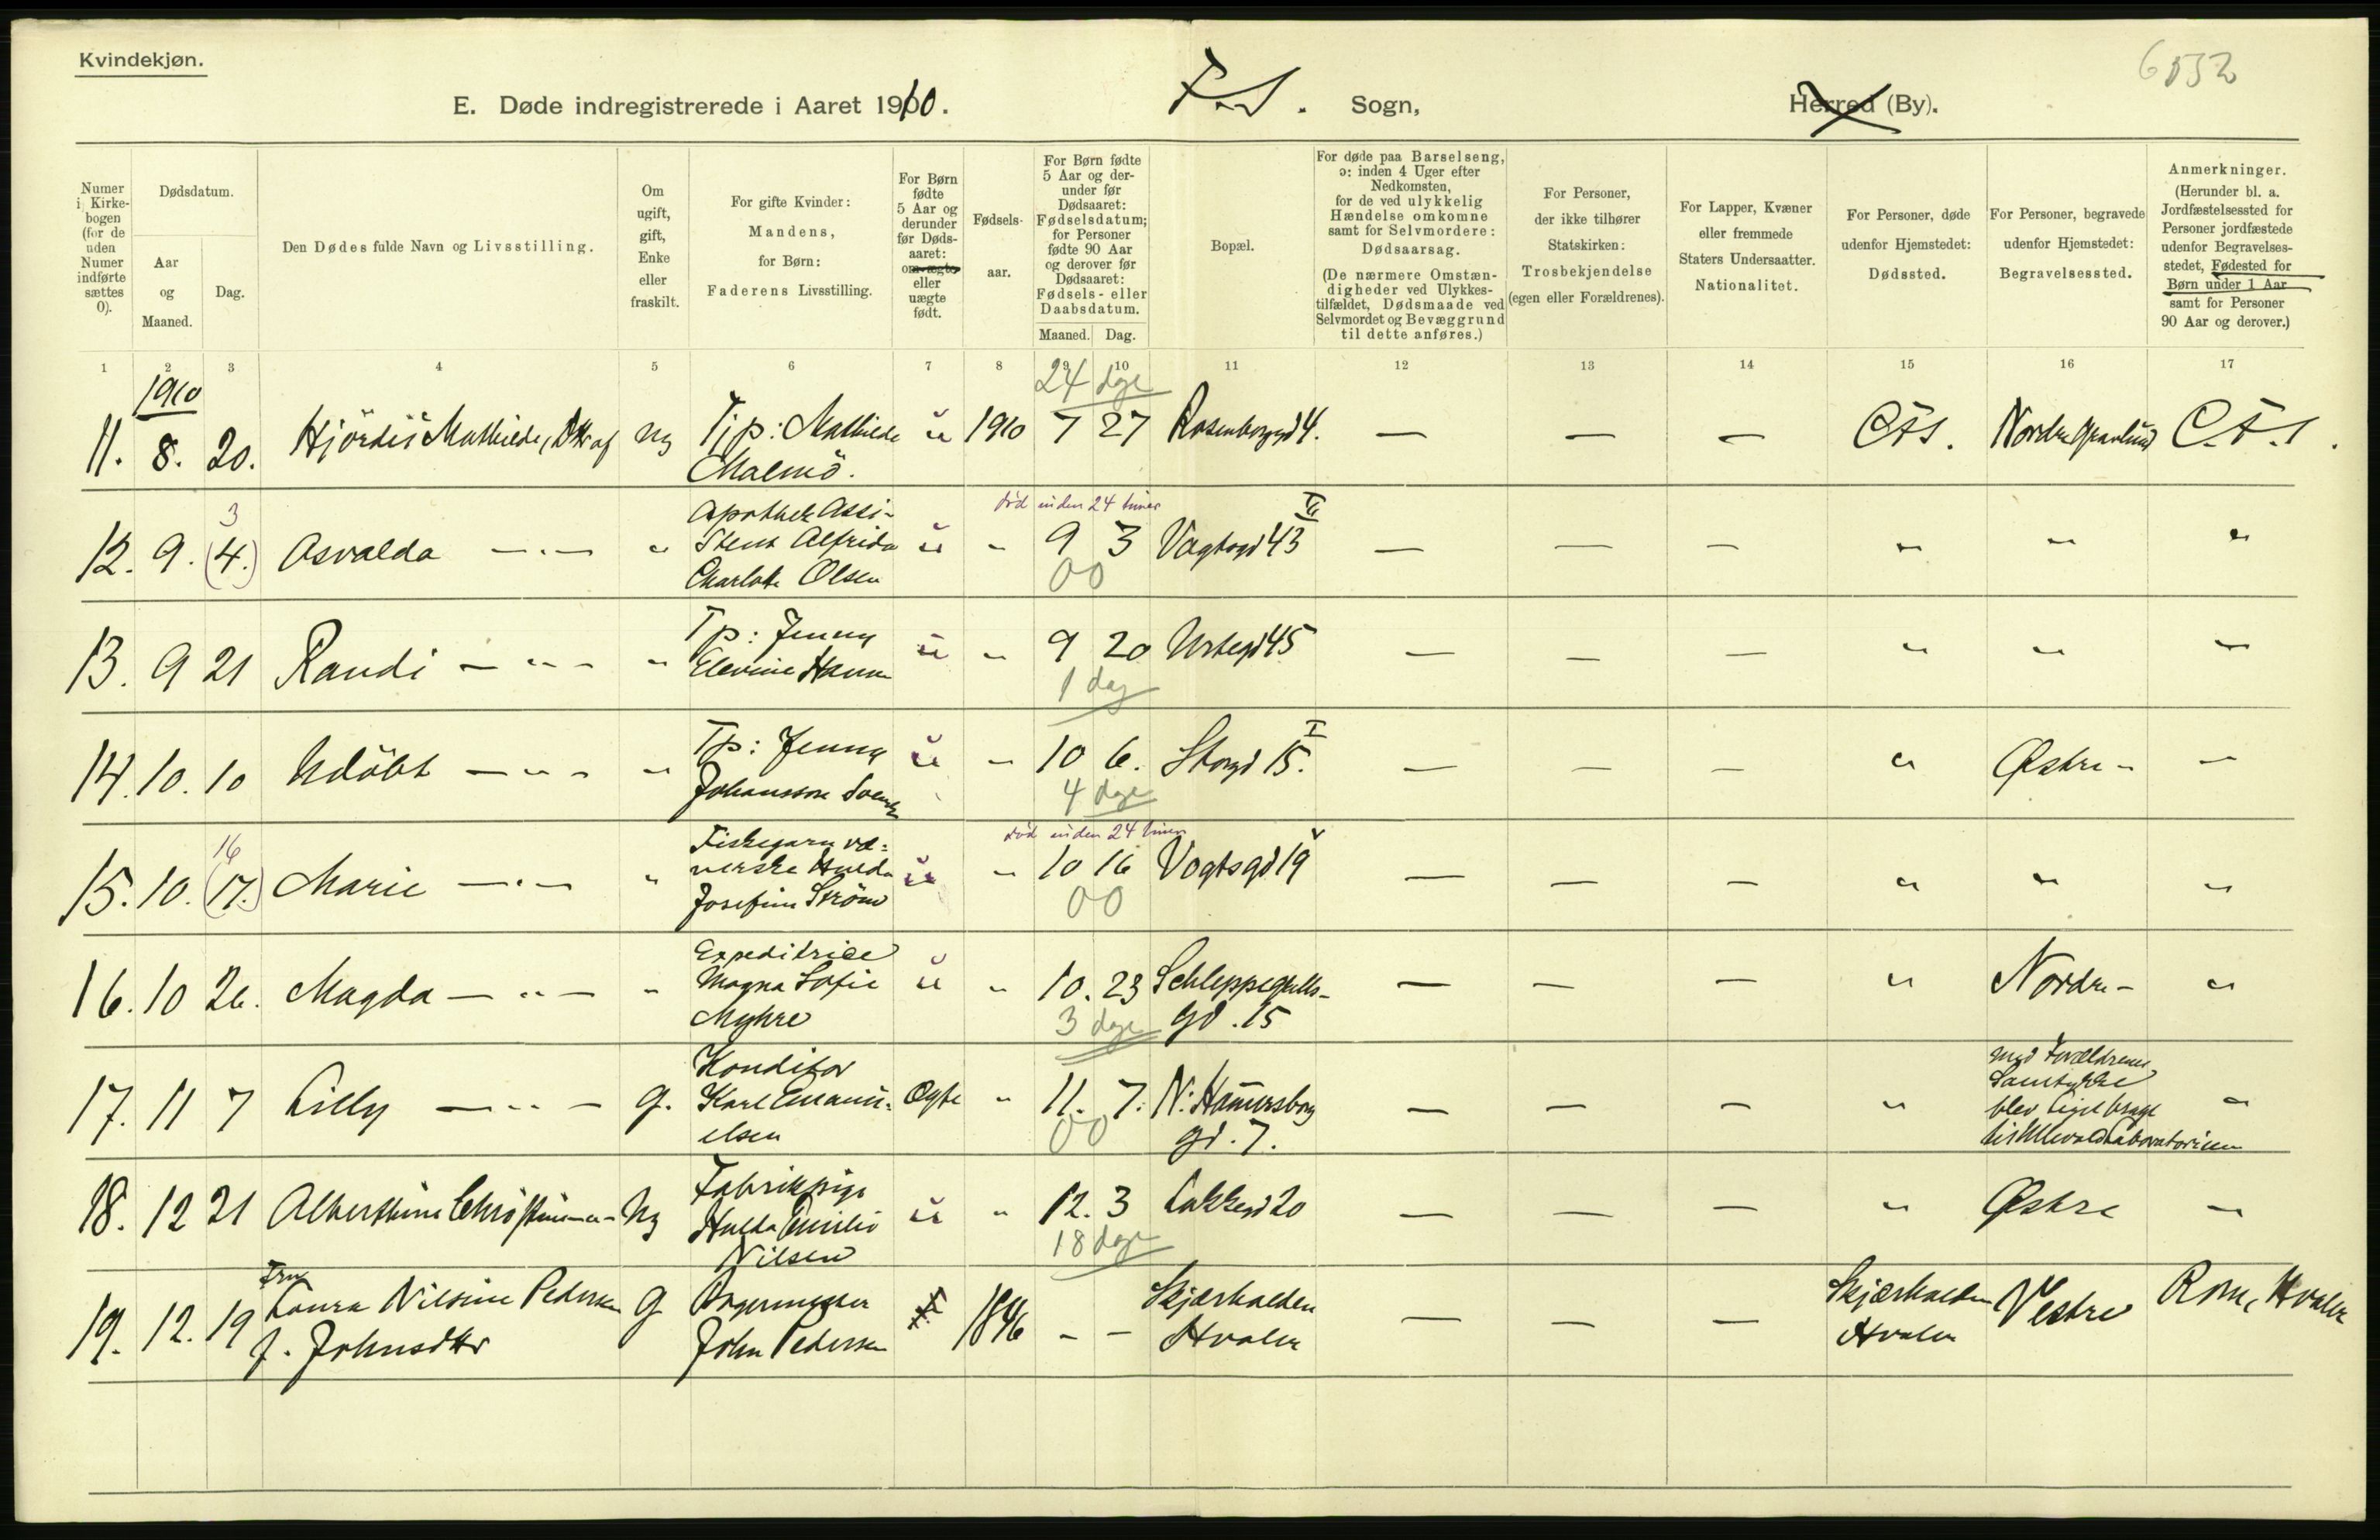 Kvindekjøn.
6532
E. Døde indregistrerede i Aaret 1910. F.S. Sogn, Herred (By).
Numer i Kirkebogen (for de uden Numer indførte sættes 0).
Dødsdatum.
Aar og Maaned.
Dag.
Den Dødes fulde Navn og Livsstilling.
Om ugift, gift, Enke eller fraskilt.
For gifte Kvinder: Mandens, for Børn: Faderens Livsstilling.
For Børn fødte 5 Aar og derunder før Dødsaaret: om ægte eller uægte født.
Fødselsaar.
For Børn fødte 5 Aar og derunder før Dødsaaret: Fødselsdatum; for Personer fødte 90 Aar og derover før Dødsaaret: Fødsels- eller Daabsdatum.
Maaned. Dag.
Bopæl.
For døde paa Barselseng, ɔ: inden 4 Uger efter Nedkomsten, for de ved ulykkelig Hændelse omkomne samt for Selvmordere: Dødsaarsag.
(De nærmere Omstændigheder ved Ulykkestilfældet, Dødsmaade ved Selvmordet og Bevæggrund til dette anføres.)
For Personer, der ikke tilhører Statskirken: Trosbekjendelse (egen eller Forældrenes).
For Lapper, Kvæner eller fremmede Staters Undersaatter. Nationalitet.
For Personer, døde udenfor Hjemstedet: Dødssted.
For Personer, begravede udenfor Hjemstedet: Begravelsessted.
Anmerkninger. (Herunder bl. a. Jordfæstelsessted for Personer jordfæstede udenfor Begravelsesstedet, Fødested for Børn under 1 Aar samt for Personer 90 Aar og derover.)
1 2 3 4 5 6 7 8 9 10 11 12 13 14 15 16 17
1910
24 dge
11. 8. 20. Hjördis Mathilde, Dttr af ug Tjp: Mathilde ü 1910 7 27 Rosenborggd 4. — — — C.F.S. Nordre Gravlund C.F.S.
Malmö.
død inden 24 timer
3
12. 9. (4.) Asvalda — " — " Apothek Assi-
stent Alfrida ü " 9 3 Vogtsgd 43 IV — — — " " "
Charlotte Olsen
00
13. 9 21 Randi — " — " Tp: Jenny ü " 9 20 Urtegd 45 — — — " " "
Elevine Hansen
1 dag
14. 10. 10 Udöbt — " — " Tp: Jenny ü " 10 6. Storgd 15. I — — — " Østre " "
Johansson Svensk
4 dge
død inden 24 timer
16
15. 10. (17.) Marie — " — " Fiskegarn væ-
verske Hulda ü " 10 16 Vogtsgd 19 V — — — " " "
Josefine Strøm
00
16. 10 26. Magda — " — " Expeditrice
Magna Sofie ü " 10. 23 Schleppegrells- — — — " Nordre " "
Myhre
3 dge gd. 15
17. 11 7 Lilly — " — g. Konditor
Karl Emanu- Ægte " 11. 7. N: Hammersborg — — — " "
elsen
00
gd. 7.
med Forældrenes
Samtykke
blev Liget bragt
til Ullevold Laboratorium
18. 12 21 Alberthine Christine " ug Fabrikpige
Hulda Emilie ü " 12. 3 Lakkegd 20 — — — " Østre "
Nilsen
18 dge
19. 12. 19 Fru
Laura Nilsine Pedersen g 1846 — — Skjærhalden — — — Skjærhalden Vestre Rom, Hvaler
f. Johnsdttr
John Pedersen
Hvaler
Hvaler